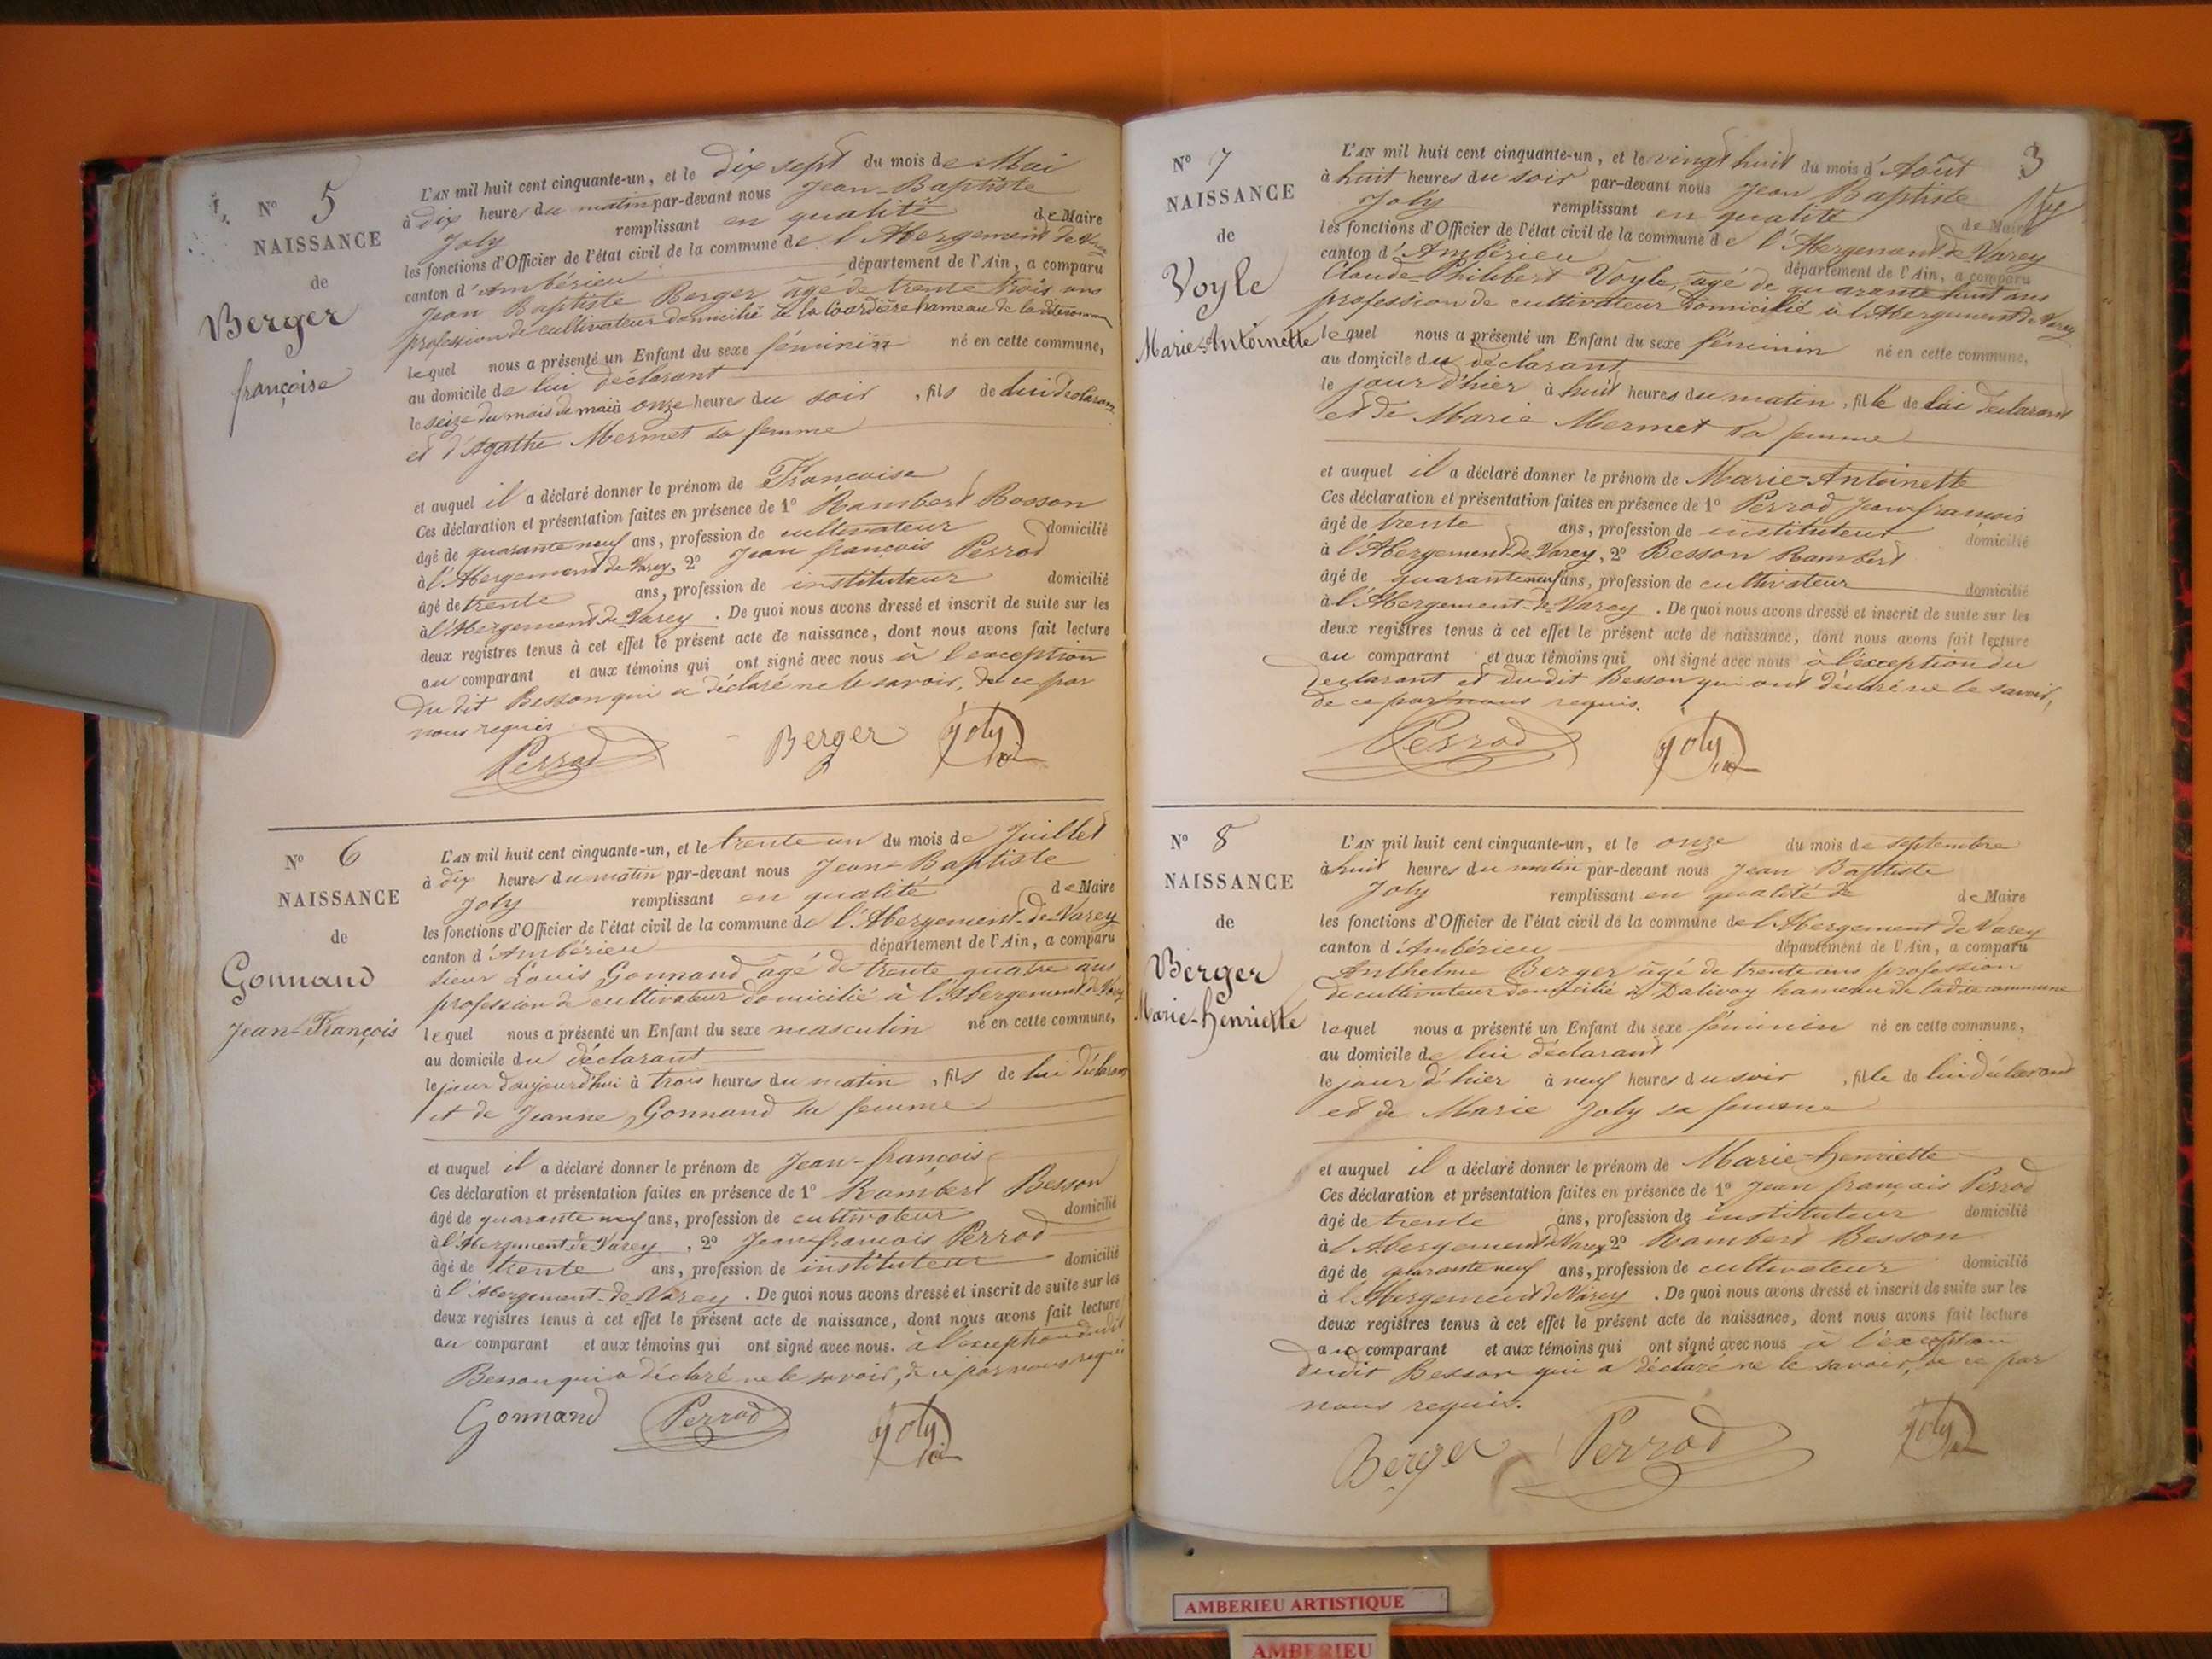 N° 5
NAISSANCE
de
Berger
françoise
L'AN mil huit cent cinquante-un, et le dix sept du mois de Mai
à dix heures du matin par-devant nous Jean-Baptiste
Joly remplissant en qualité de Maire
les fonctions d'Officier de l'état civil de la commune de l'Abergement de Varey
canton d'Ambérieu département de l'Ain, a comparu
Jean Baptiste Berger âgé de trente trois ans
profession de cultivateur domicilié à la hameau de la dite commune
lequel nous a présenté un Enfant du sexe féminin né en cette commune,
au domicile de lui déclarant
le seize du mois de mai à onze heures du soir, fils de lui déclarant
et d'Agathe Mermet sa femme
et auquel il a déclaré donner le prénom de Françoise
Ces déclaration et présentation faites en présence de 1° Rambert Besson
âgé de quarante neuf ans, profession de cultivateur domicilié
à l'Abergement de Varey, 2° Jean françois Perrod
âgé de trente ans, profession de instituteur domicilié
à l'Abergement de Varey. De quoi nous avons dressé et inscrit de suite sur les
deux registres tenus à cet effet le présent acte de naissance, dont nous avons fait lecture
au comparant et aux témoins qui ont signé avec nous à l'exception
du dit Besson qui a déclaré ne le savoir, de ce par
nous requis
Perrod Berger Joly
N° 6
NAISSANCE
de
Gonnand
Jean-François
L'AN mil huit cent cinquante-un, et le trente un du mois de Juillet
à dix heures du matin par-devant nous Jean-Baptiste
Joly remplissant en qualité de Maire
les fonctions d'Officier de l'état civil de la commune de l'Abergement-de-Varey
canton d'Ambérieu département de l'Ain, a comparu
sieur Louis Gonnand âgé de trente quatre ans
profession de cultivateur domicilié à l'Abergement de Varey
lequel nous a présenté un Enfant du sexe masculin né en cette commune,
au domicile du déclarant
le jour d'aujourd'hui à trois heures du matin, fils de lui déclarant
et de Jeanne Gonnand sa femme
et auquel il a déclaré donner le prénom de Jean-françois
Ces déclaration et présentation faites en présence de 1° Rambert Besson
âgé de quarante neuf ans, profession de cultivateur domicilié
à l'Abergement de Varey, 2° Jean françois Perrod
âgé de trente ans, profession de instituteur domicilié
à l'Abergement-de-Varey. De quoi nous avons dressé et inscrit de suite sur les
deux registres tenus à cet effet le présent acte de naissance, dont nous avons fait lecture
au comparant et aux témoins qui ont signé avec nous. à l'exception dudit
Besson qui a déclaré ne le savoir, de ce par nous requis
Gonnand Perrod Joly
3
N° 7
NAISSANCE
de
Voyle
Marie-Antoinette
L'AN mil huit cent cinquante-un, et le vingt huit du mois d'Août
à huit heures du soir par-devant nous Jean Baptiste
Joly remplissant en qualité de Maire
les fonctions d'Officier de l'état civil de la commune de l'Abergement de Varey
canton d'Ambérieu département de l'Ain, a comparu
Claude-Philibert Voyle, âgé de quarante huit ans
profession de cultivateur domicilié à l'Abergement de Varey
lequel nous a présenté un Enfant du sexe féminin né en cette commune,
au domicile du déclarant
le jour d'hier à huit heures du matin, fille de lui déclarant
et de Marie Mermet sa femme
et auquel il a déclaré donner le prénom de Marie-Antoinette
Ces déclaration et présentation faites en présence de 1° Perrod Jean françois
âgé de trente ans, profession de instituteur domicilié
à l'Abergement de Varey, 2° Besson Rambert
âgé de quarante neuf ans, profession de cultivateur domicilié
à l'Abergement de Varey. De quoi nous avons dressé et inscrit de suite sur les
deux registres tenus à cet effet le présent acte de naissance, dont nous avons fait lecture
au comparant et aux témoins qui ont signé avec nous à l'exception du
déclarant et du dit Besson qui ont déclaré ne le savoir,
de ce par nous requis.
Perrod Joly
N° 8
NAISSANCE
de
Berger
Marie-henriette
L'AN mil huit cent cinquante-un, et le onze du mois de septembre
à huit heures du matin par-devant nous Jean Baptiste
Joly remplissant en qualité de de Maire
les fonctions d'Officier de l'état civil de la commune de l'Abergement de Varey
canton d'Ambérieu département de l'Ain, a comparu
Anthelme Berger âgé de trente ans profession
de cultivateur domicilié à Dalivoy hameau de ladite commune
lequel nous a présenté un Enfant du sexe féminin né en cette commune,
au domicile de lui déclarant
le jour d'hier à neuf heures du soir, fille de lui déclarant
et de Marie Joly sa femme
et auquel il a déclaré donner le prénom de Marie-henriette
Ces déclaration et présentation faites en présence de 1° Jean françois Perrod
âgé de trente ans, profession de instituteur domicilié
à l'Abergement de Varey, 2° Rambert Besson
âgé de quarante neuf ans, profession de cultivateur domicilié
à l'Abergement de Varey. De quoi nous avons dressé et inscrit de suite sur les
deux registres tenus à cet effet le présent acte de naissance, dont nous avons fait lecture
au comparant et aux témoins qui ont signé avec nous à l'exception
dudit Besson qui a déclaré ne le savoir, de ce par
nous requis.
Berger Perrod Joly
AMBERIEU ARTISTIQUE
AMBERIEU